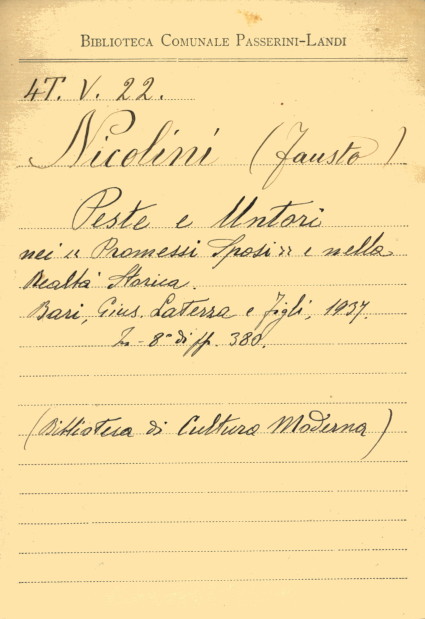 BIBLIOTECA COMUNALE PASSERINI-LANDI
4T. V. 22.
Nicolini (Fausto)
Peste e Untori
nei « Promessi Sposi » e nella
Realtà Storica.
Bari, Gius. Laterza e Figli, 1937.
- 8° di pp. 380.
(Biblioteca di Cultura Moderna)